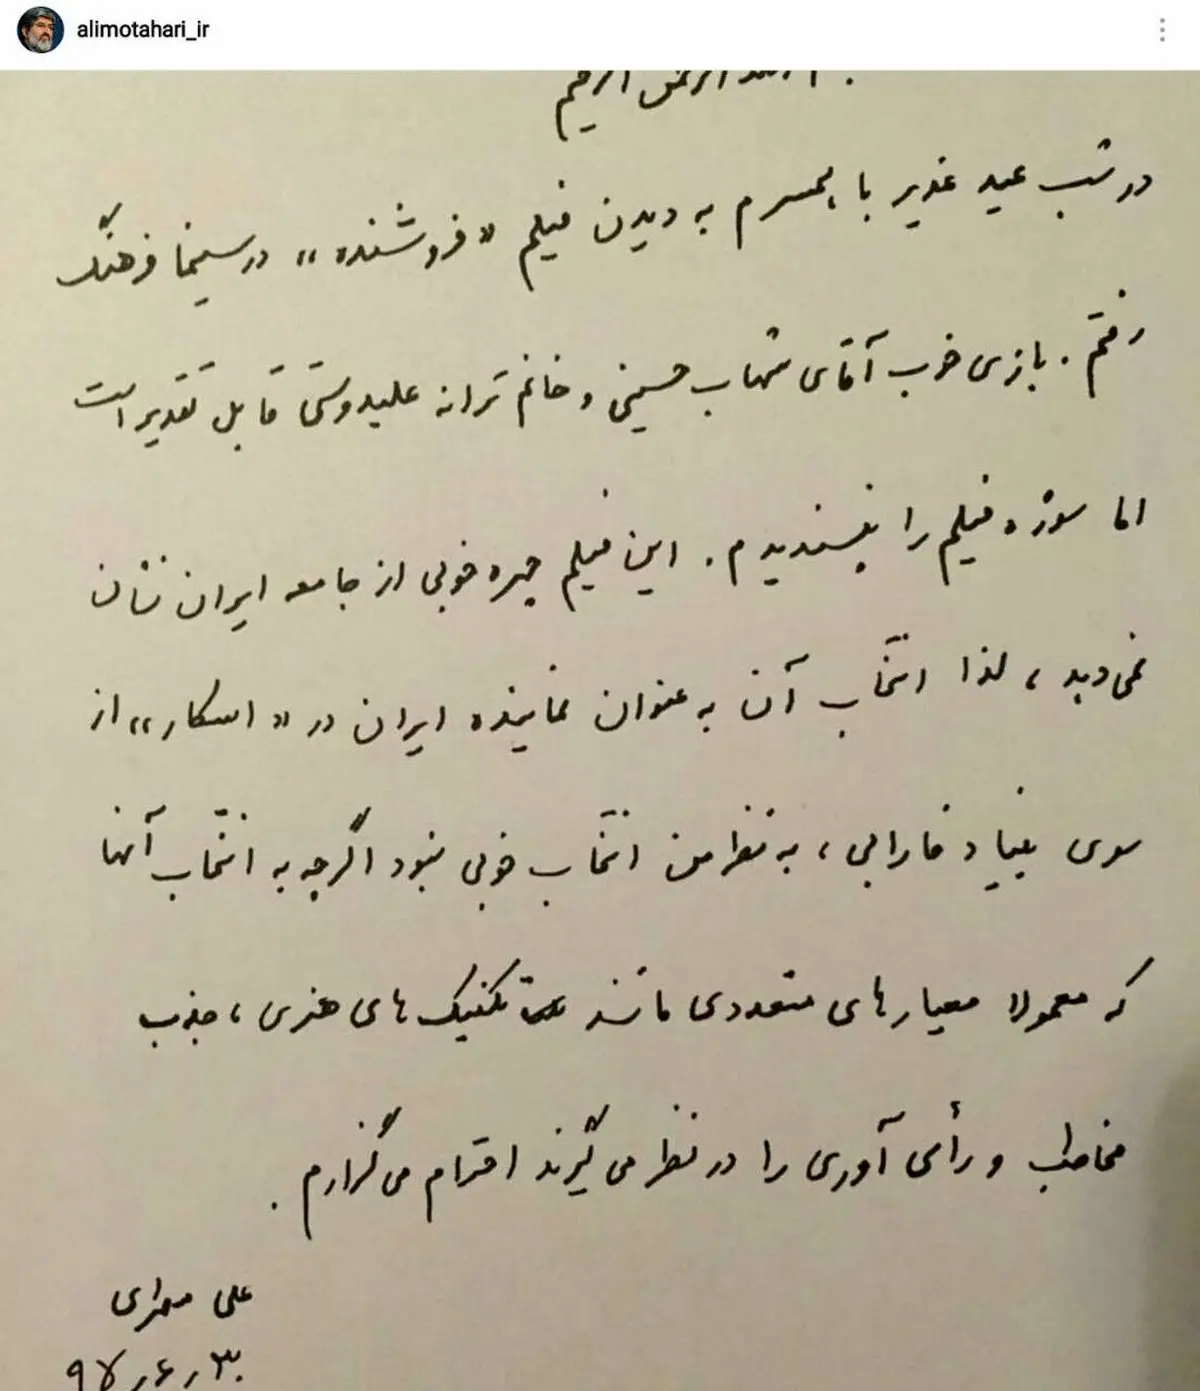 alimotahari_ir
بسم الله الرحمن الرحیم
در شب عید غدیر با همسرم به دیدن فیلم «فروشنده» در سینما فرهنگ
رفتم. بازی خوب آقای شهاب حسینی و خانم ترانه علیدوستی قابل تقدیر است
اما سوژه فیلم را نپسندیدم. این فیلم چهره خوبی از جامعه ایران نشان
نمی‌دهد، لذا انتخاب آن به عنوان نماینده ایران در «اسکار» از
سوی بنیاد فارابی، به نظر من انتخاب خوبی نبود اگرچه به انتخاب آنها
که معمولا معیارهای متعددی مانند تکنیک های هنری، جذب
مخاطب و رأی آوری را در نظر می گیرند احترام می گزارم.
علی مطهری